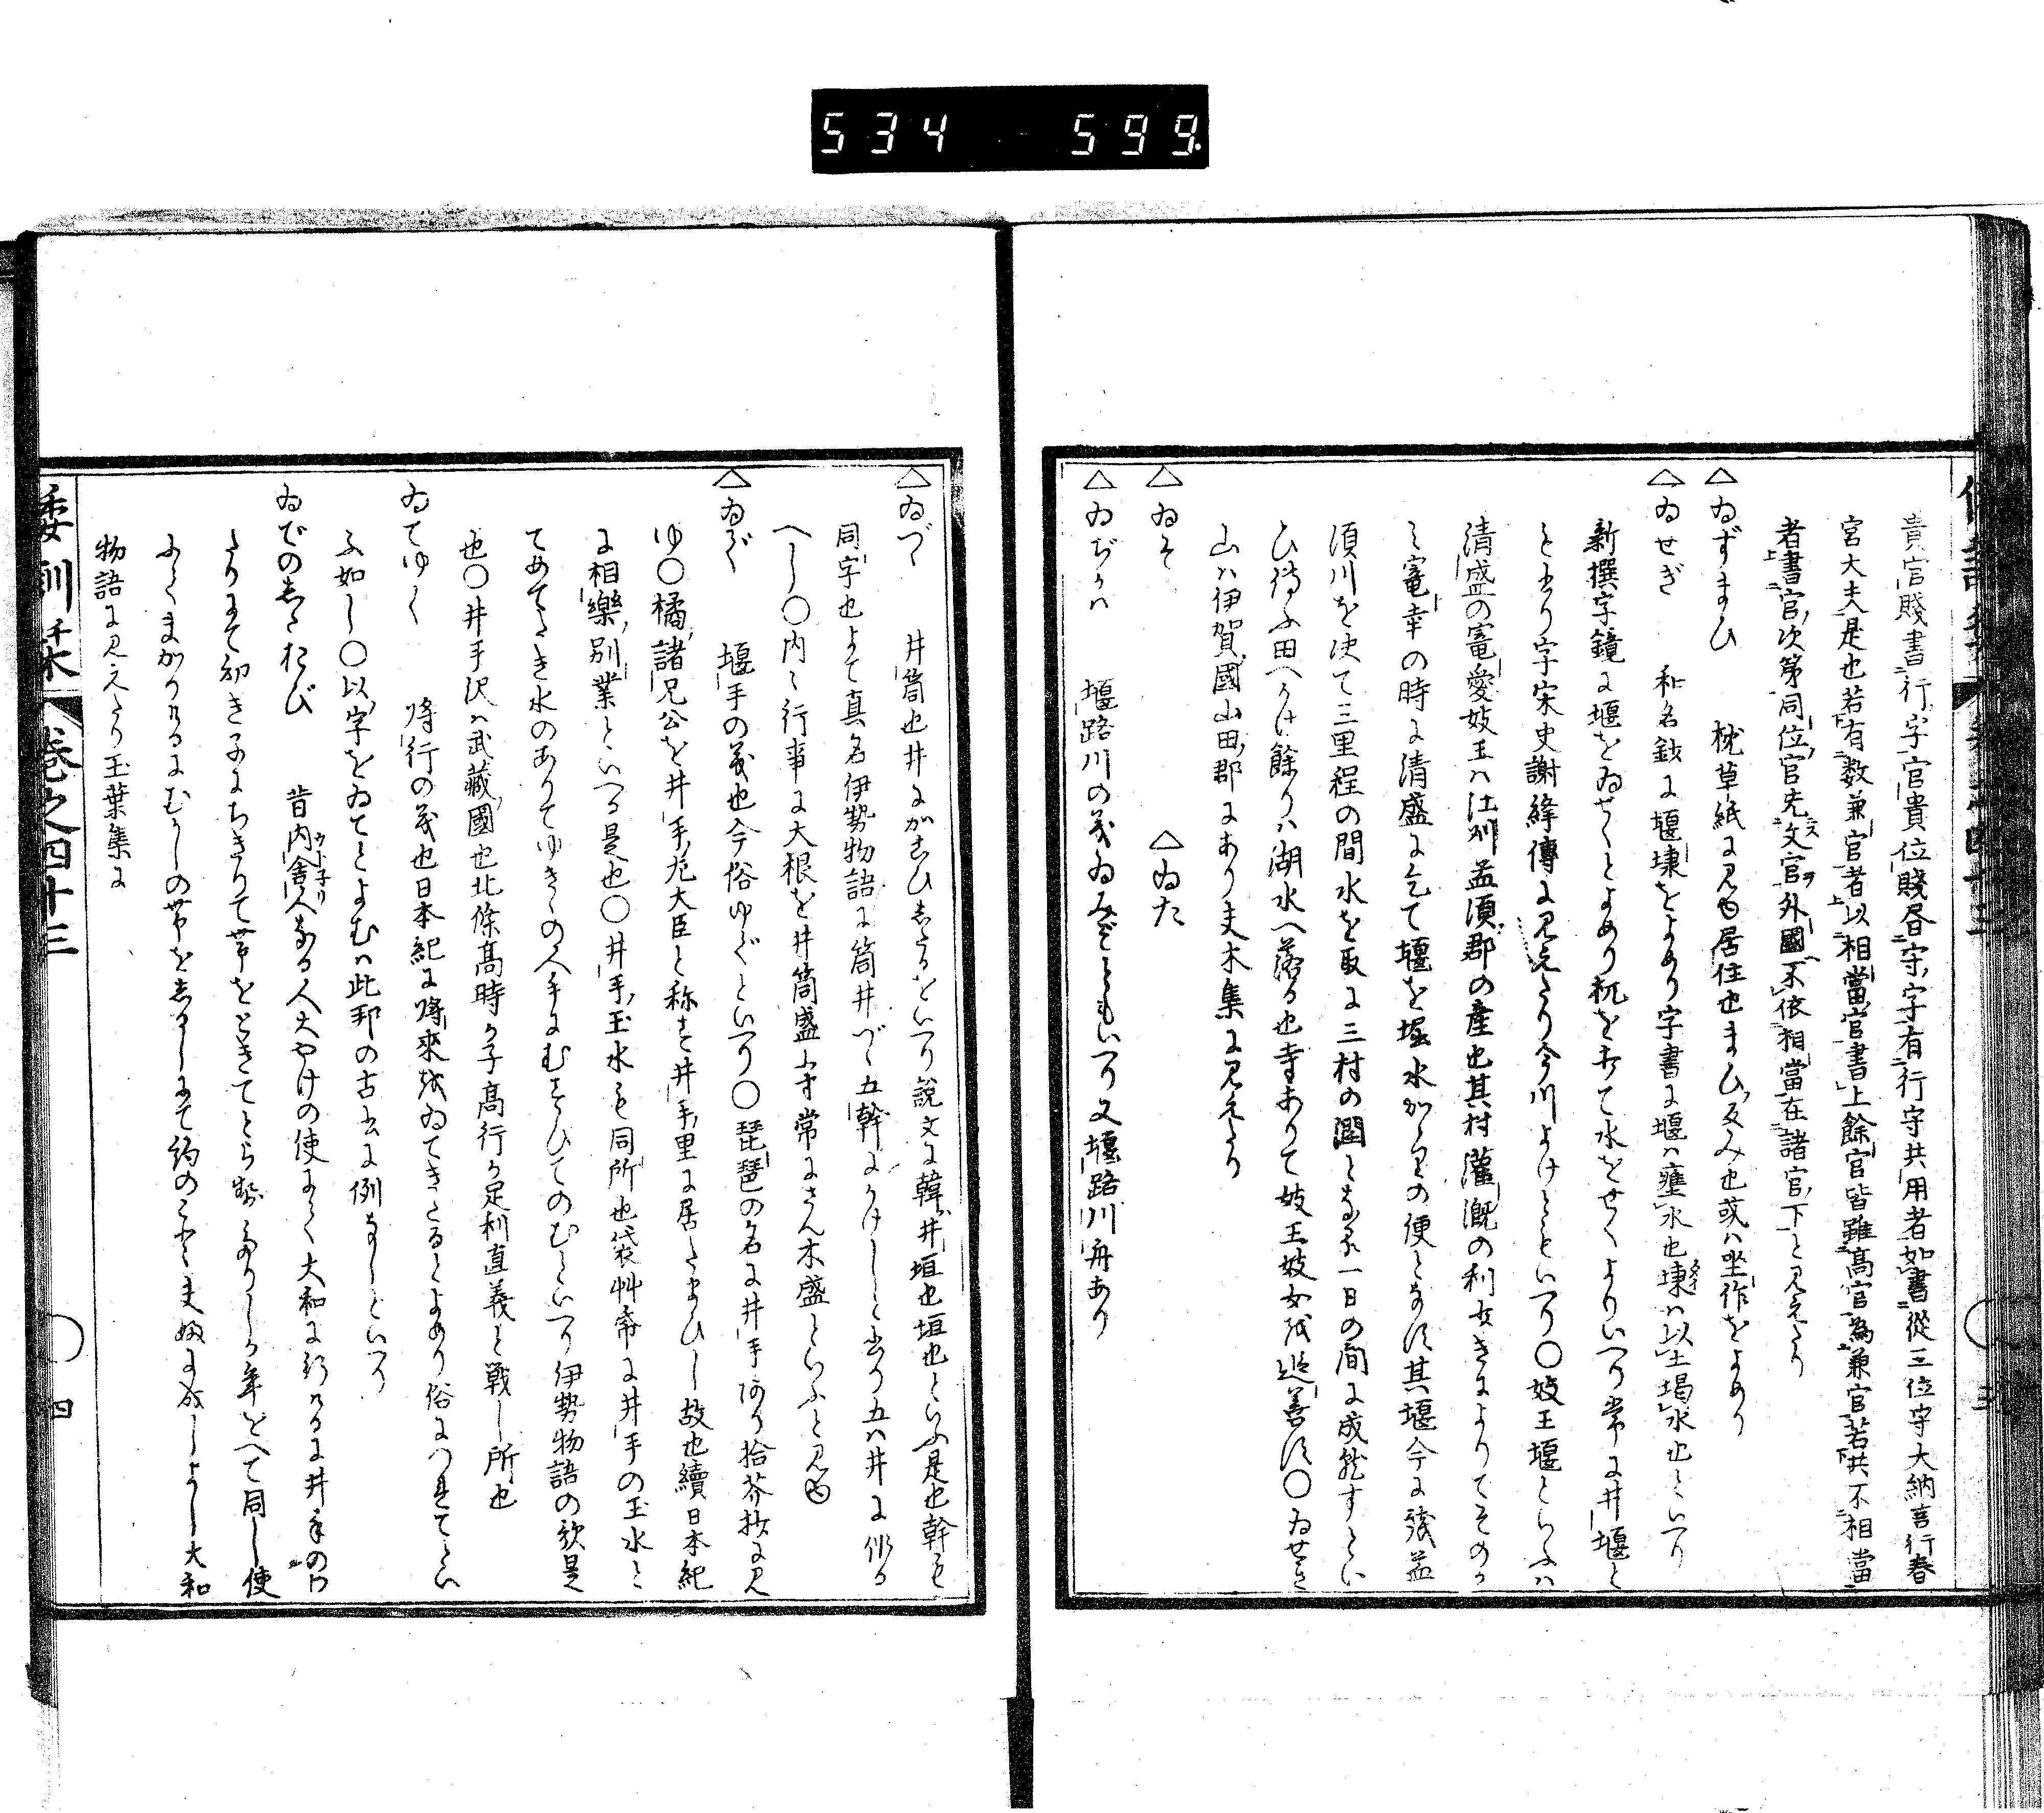 534 599
貴官賤書行字官貴位賤昬守字有行守共用者如書從三位守大納言行春
宮大夫是也若有数兼官者以相當官書上餘官皆雖高官為兼官若共不相當
者書官次第同位官先文官外國不依相當在諸官下と見えたり
△ゐずまひ 枕草紙に見ゆ居住也まひ反み也或ハ坐作をよめり
△ゐせぎ 和名鈔に堰埭をよめり字書に堰ハ壅水也埭ハ以土堨水也といへり
新撰字鏡に堰をゐせくとよめり杭を打て水をせくよりいへり常に井堰と
とより字宋史謝絳傳に見えたり今川よけともいへり〇妓王堰といふハ
清盛の寵愛妓王ハ江州益須郡の産也其村灌漑の利なきによりてそのか
ミ寵幸の時に清盛に乞て堰を堀水かゝりの便となす其堰今に残益
須川を決て三里程の間水を取に三村の潤となる一日の間に成就すとい
ひ傳ふ田へかけ餘りハ湖水へ落る也寺ありて妓王妓女を追善す〇ゐせき
山ハ伊賀國山田郡にあり夫木集に見えたり
△ゐそ △ゐた
△ゐぢかハ 堰路川の義ゐみぞともいへり又堰路川舟あり
倭訓栞 卷之四十三 四
△ゐづゝ 井筒也井にかこひしたるをいへり説文に韓井垣也垣也といふ是也幹も
同字也よて真名伊勢物語に筒井づゝ五幹にかけしとよめり五ハ井に似る
へし〇内々行事に大根を井筒盛よ常にさん木盛といふと見ゆ
△ゐで 堰手の義也今俗ゆぐといへり〇琵琶の名に井手あり拾芥抄に見
ゆ〇橘諸兄公を井手左大臣と称す井手里に居たまひし故也續日本紀
に相樂別業といへる是也〇井手玉水も同所也袋艸帋に井手の玉水と
てめてたき水のありてゆきゝの人手にむすひてのむといへり伊勢物語の歌是
也〇井手沢ハ武藏國也北條高時か子高行か足利直義と戦し所也
ゐてゆく 將行の義也日本紀に將來をゐてきたるとよめり俗につれてとい
ふ如し〇以字をゐてとよむハ此邦の古書に例なしといへり
ゐでのしたおび 昔内舎人なる人大やけの使にて大和に行けるに井手のわ
たりにて初き子にちきりて帯をときてとらせたりしか年をへて同し使
にてまかりけるにむかしの帯をしるしにて約のことく夫婦に成しよし大和
物語に見えたり玉葉集に